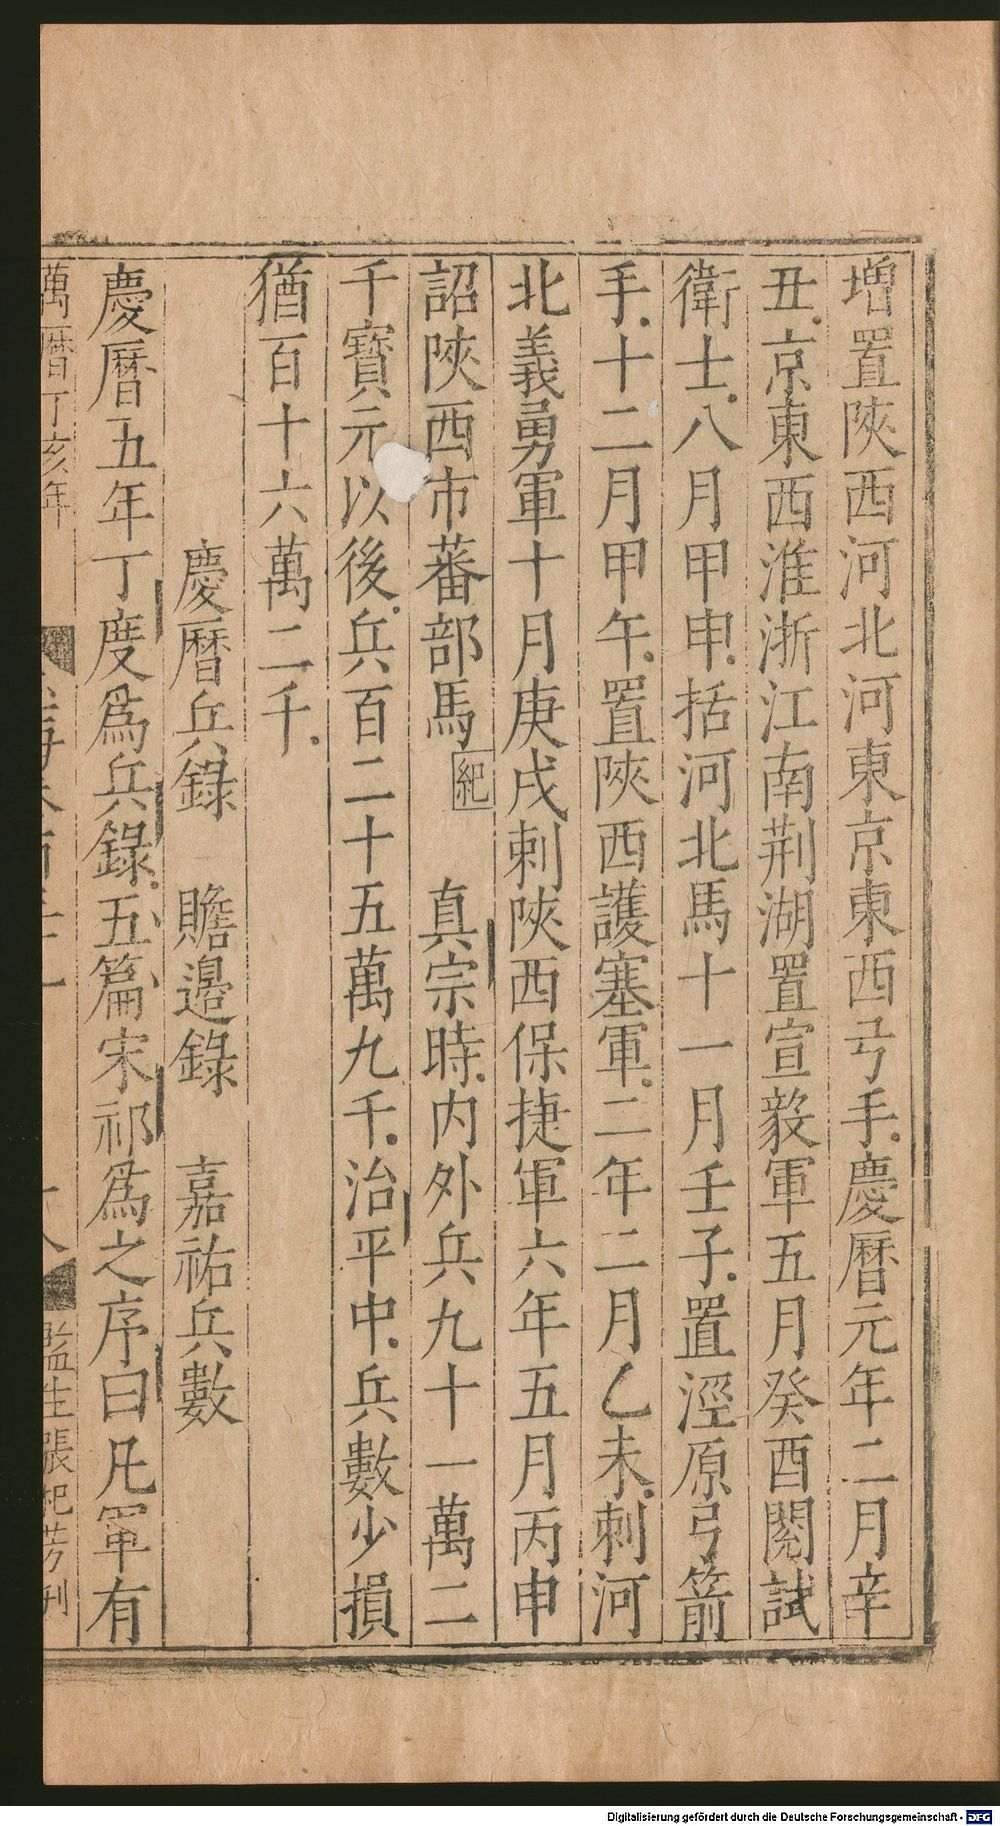 増置陜西河北河東京東西弓手慶曆元年二月辛
丑京東西淮浙江南荆湖置宣毅軍五月癸酉閱試
衛士八月甲申括河北馬十一月壬子置涇原弓箭
手十二月甲午置陜西護塞軍二年二月乙未刺河
北義勇軍十月庚戌刺陜西保捷軍六年五月丙申
詔陜西市蕃部馬紀 真宗時内外兵九十一萬二
千寶元以後兵百二十五萬九千治平中兵數少損
猶百十六萬二千
慶曆兵錄 贍邉錄 嘉祐兵數
慶曆五年丁度爲兵錄五篇宋祁爲之序曰凡軍有
萬曆丁亥年
監生張
Digitalisierung gefördert durch die Deutsche Forschungsgemeinschaft - DFG